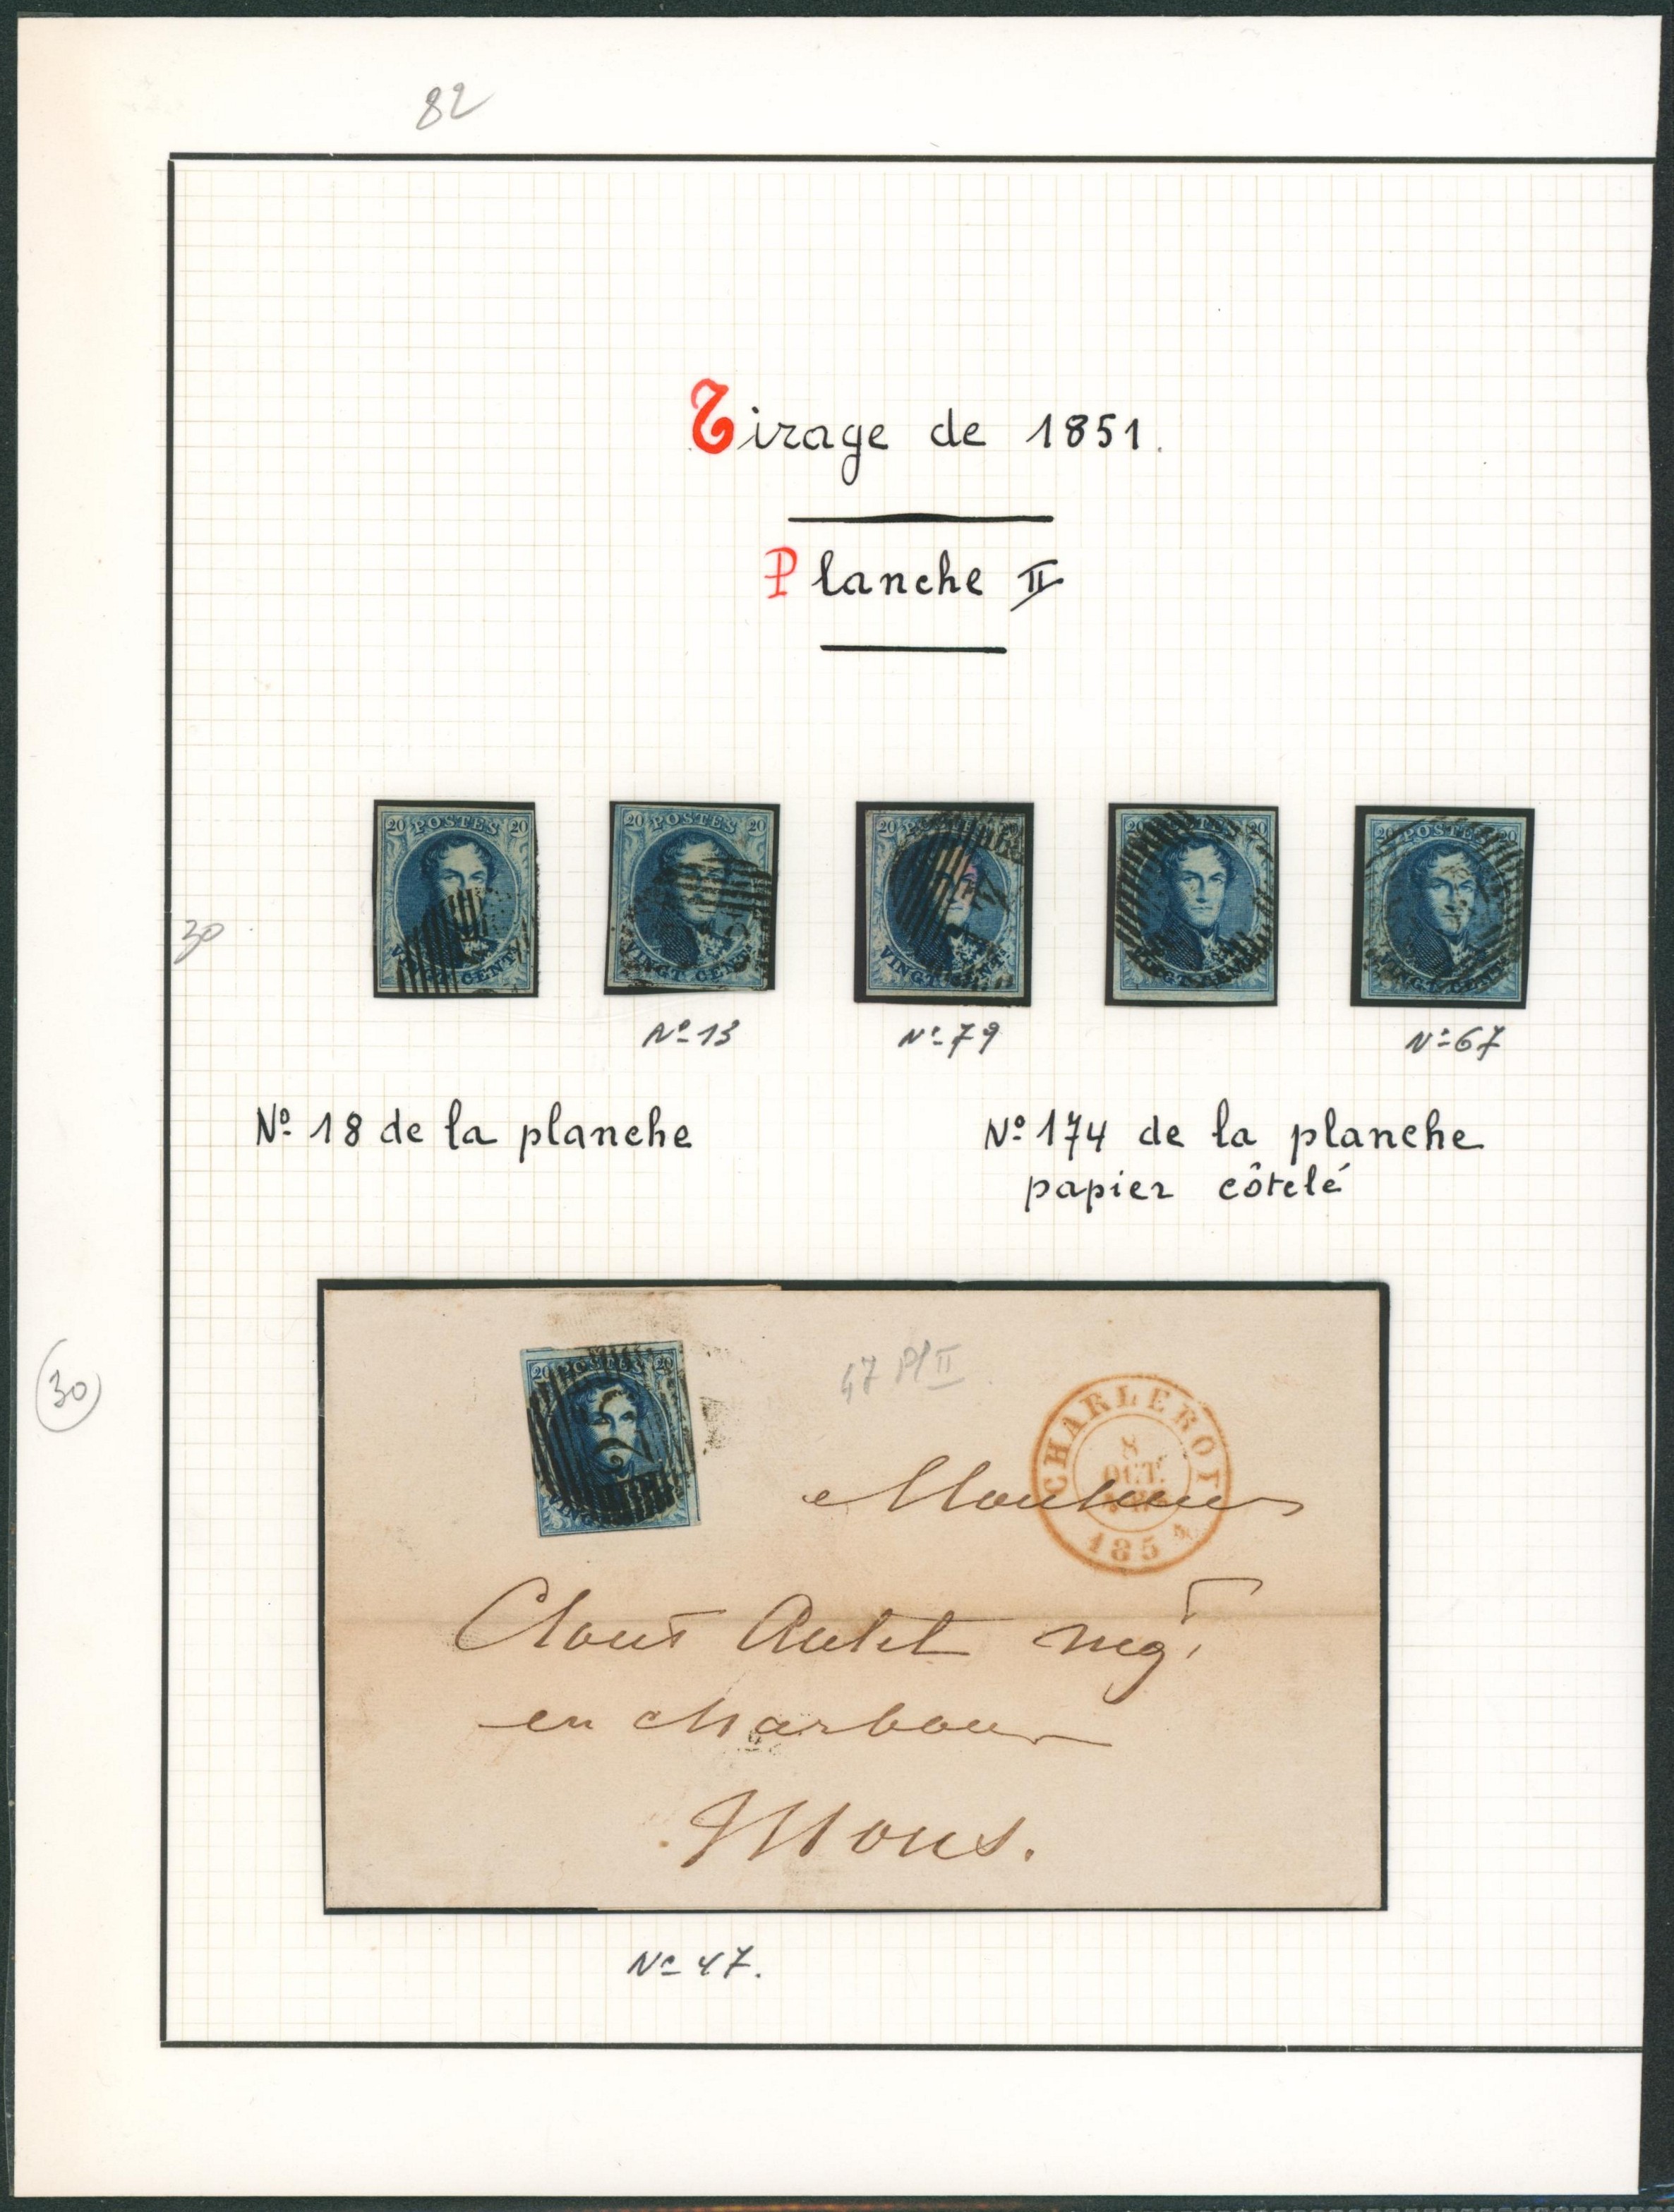 82
Tirage de 1851.
Planche II
20 POSTES 20
VINGT CENTS
20 POSTES 20
VINGT CENTS
20 POSTES 20
VINGT CENTS
20 POSTES 20
VINGT CENTS
20 POSTES 20
VINGT CENTS
30
Nº 13
Nº 79
Nº 67
Nº 18 de la planche
Nº 174 de la planche
papier côtelé
30
20 POSTES 20
VINGT
47 Pl II
CHARLEROI
8
OCT.
185
Monsieur
négt
en charbon
Mons.
Nº 47.